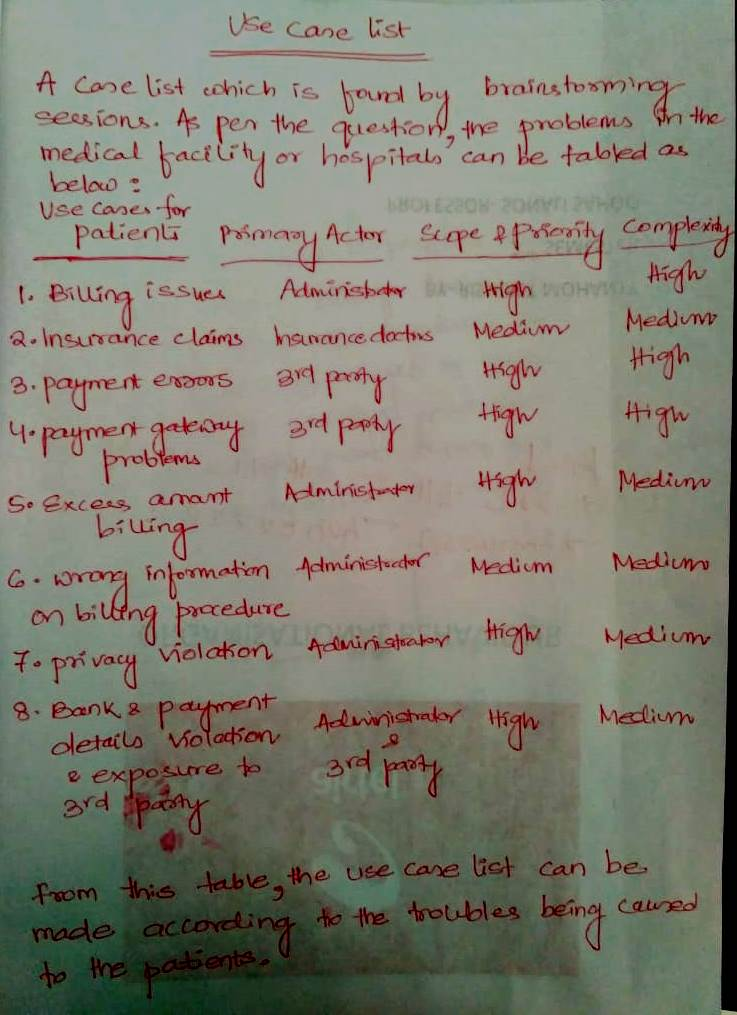 Use Case list
A Case list which is found by brainstorming
sessions. As per the question, the problems in the
medical facility or hospitals can be tabled as
below :
Use cases for
patients Primary Actor Scope & Priority Complexity
1. Billing issues Administrator High High
2. Insurance claims Insurance doctors Medium Medium
3. payment errors 3rd party High High
4. payment gateway 3rd party High High
problems
5. Excess amant Administrator High Medium
billing
6. wrong information Administrator Medium Medium
on billing procedure
7. privacy violation Administrator High Medium
8. Bank & payment Administrator High Medium
details violation &
& exposure to 3rd party
3rd party
from this table, the use case list can be
made according to the troubles being caused
to the patients.